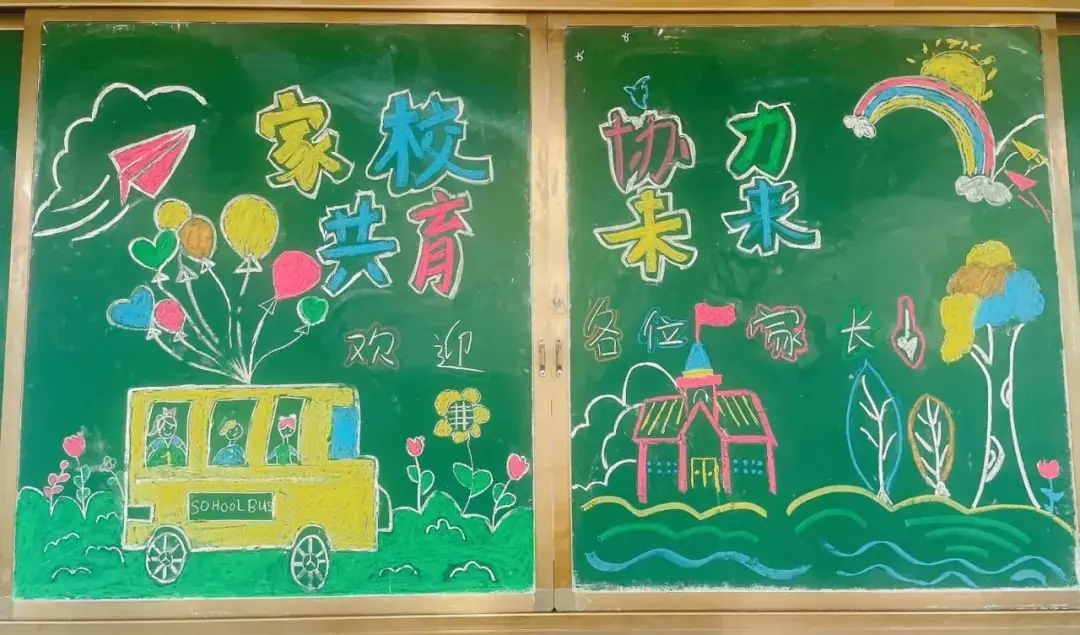 家校
共育
欢迎
SOHOOL BUS
协力
未来
各位家长